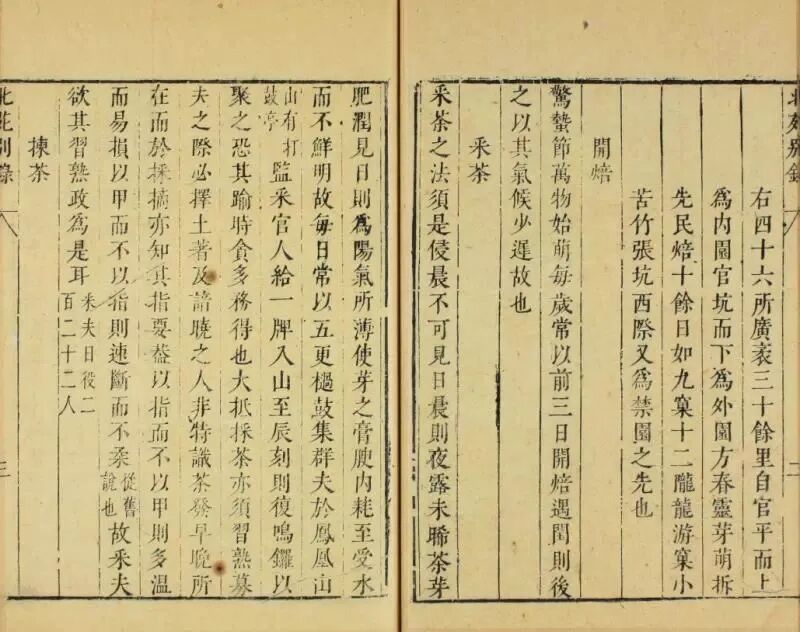 北苑別錄
二
右四十六所廣袤三十餘里自官平而上
爲內園官坑而下爲外園方春靈芽萌拆
先民焙十餘日如九窠十二隴龍游窠小
苦竹張坑西際又爲禁園之先也
開焙
驚蟄節萬物始萌每歲常以前三日開焙遇閏則後
之以其氣候少遲故也
采茶
采茶之法須是侵晨不可見日晨則夜露未晞茶芽
肥潤見日則爲陽氣所薄使芽之膏腴內耗至受水
而不鮮明故每日常以五更檛鼓集群夫於鳳凰山
山有打鼓亭監采官人給一牌入山至辰刻則復鳴鑼以
聚之恐其踰時貪多務得也大抵採茶亦須習熟募
夫之際必擇土著及諳曉之人非特識茶發早晚所
在而於採摘亦知其指要葢以指而不以甲則多溫
而易損以甲而不以指則速斷而不柔從舊說也故采夫
欲其習熟政爲是耳采夫日役二百二十二人
揀茶
北苑別錄
三